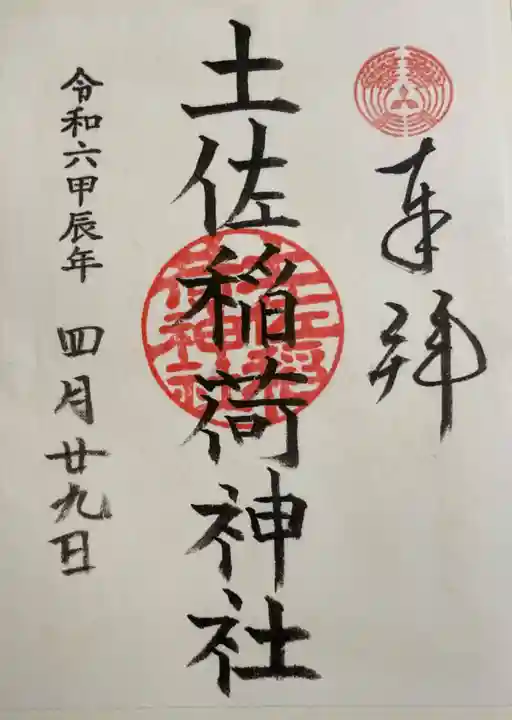 奉拝
土佐稲荷神社
令和六甲辰年 四月廿九日